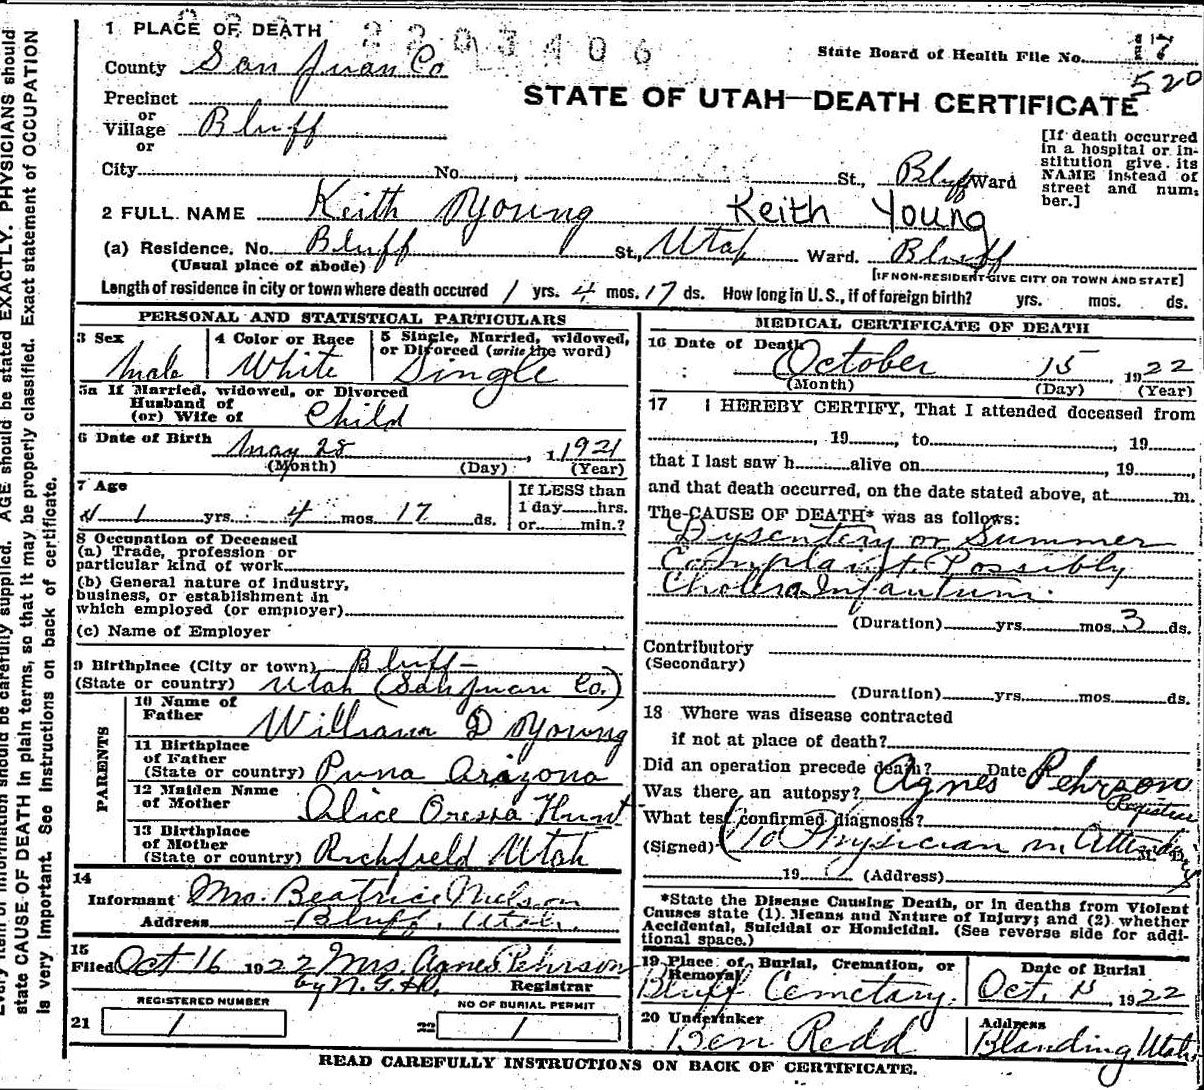 1 PLACE OF DEATH
2203406
State Board of Health File No. 17
520
County San Juan Co
STATE OF UTAH—DEATH CERTIFICATE
Precinct
or
Village Bluff
or
[If death occurred
in a hospital or in-
stitution give its
NAME instead of
street and num-
ber.]
City No. , St., Bluff Ward
2 FULL NAME Keith Young Keith Young
(a) Residence. No. Bluff St., Utah Ward. Bluff
(Usual place of abode) [IF NON-RESIDENT GIVE CITY OR TOWN AND STATE]
Length of residence in city or town where death occured 1 yrs. 4 mos. 17 ds. How long in U.S., if of foreign birth? yrs. mos. ds.
PERSONAL AND STATISTICAL PARTICULARS
3 Sex Male
4 Color or Race White
5 Single, Married, widowed,
or Divorced (write the word)
Single
5a If Married, widowed, or Divorced
Husband of
(or) Wife of Child
6 Date of Birth May 28, 1921
(Month) (Day) (Year)
7 Age
1 yrs. 4 mos. 17 ds.
If LESS than
1 day hrs.
or min.?
8 Occupation of Deceased
(a) Trade, profession or
particular kind of work
(b) General nature of industry,
business, or establishment in
which employed (or employer)
(c) Name of Employer
9 Birthplace (City or town) Bluff—
(State or country) Utah (San Juan Co.)
PARENTS
10 Name of
Father William D Young
11 Birthplace
of Father
(State or country) Pima Arizona
12 Maiden Name
of Mother Alice Hunt
13 Birthplace
of Mother
(State or country) Richfield Utah
14
Informant Mrs. Beatrice Nielson
Address Bluff, Utah.
15
Filed Oct 16 1922 Mrs. Agnes Pehrson
by Registrar
REGISTERED NUMBER
21 1
NO OF BURIAL PERMIT
22 1
MEDICAL CERTIFICATE OF DEATH
16 Date of Death October 15, 1922
(Month) (Day) (Year)
17 I HEREBY CERTIFY, That I attended deceased from
, 19 , to , 19
that I last saw h alive on , 19 ,
and that death occurred, on the date stated above, at m.
The CAUSE OF DEATH* was as follows:
Dysentery or Summer
Complaint. Possibly
Cholera Infantum.
(Duration) yrs. mos. 3 ds.
Contributory
(Secondary)
(Duration) yrs. mos. ds.
18 Where was disease contracted
if not at place of death?
Did an operation precede death? Date
Was there an autopsy? Agnes Pehrson
Registrar
What test confirmed diagnosis?
(Signed) (No Physician in Attend.
19 (Address)
*State the Disease Causing Death, or in deaths from Violent
Causes state (1). Means and Nature of Injury; and (2) whether
Accidental, Suicidal or Homicidal. (See reverse side for addi-
tional space.)
19 Place of Burial, Cremation, or
Removal
Bluff Cemetary.
Date of Burial
Oct. 15, 1922
20 Undertaker
Ben Redd
Address
Blanding Utah
READ CAREFULLY INSTRUCTIONS ON BACK OF CERTIFICATE.
Every item of information should be carefully supplied. AGE should be stated EXACTLY. PHYSICIANS should
state CAUSE OF DEATH in plain terms, so that it may be properly classified. Exact statement of OCCUPATION
is very important. See Instructions on back of certificate.